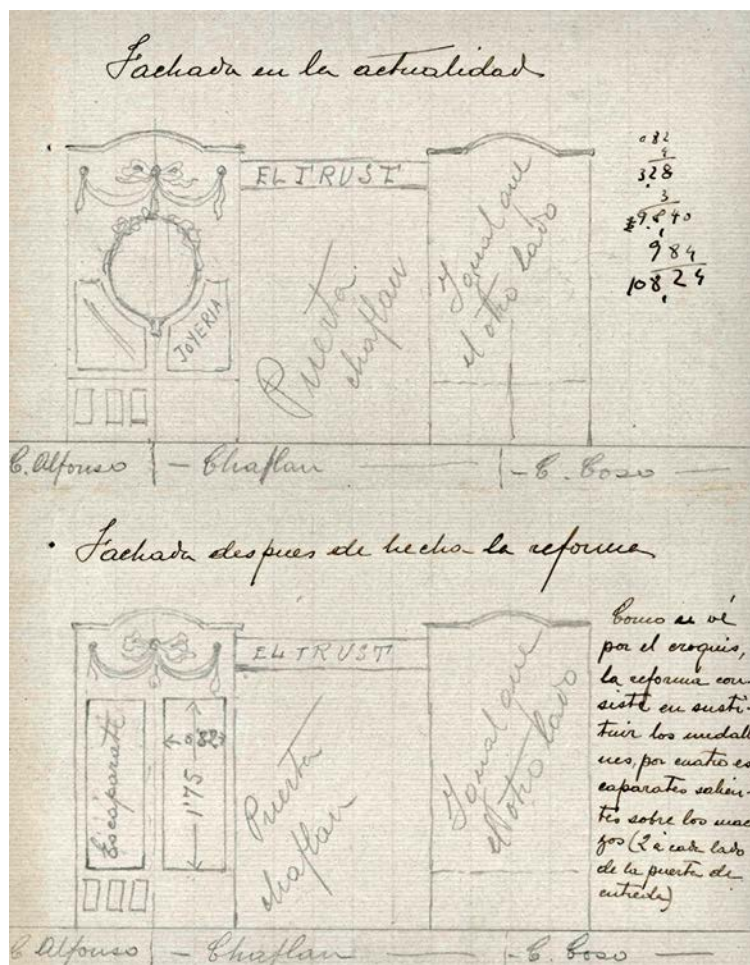 Fachada en la actualidad
EL TRUST
JOYERIA
Puerta
chaflan
Igual que
el otro lado
082
4
328
3
9.840
984
108,24
C. Alfonso - Chaflan - C. Coso -
Fachada despues de hecha la reforma
EL TRUST
Escaparate
0'82
1'75
Puerta
chaflan
Igual que
el otro lado
C. Alfonso - Chaflan - C. Coso -
Como se vé
por el croquis,
la reforma con-
siste en susti-
tuir los medall
nes, por cuatro es
caparates salien-
tes sobre los mac
jos (2 á cada lado
de la puerta de
entrada)